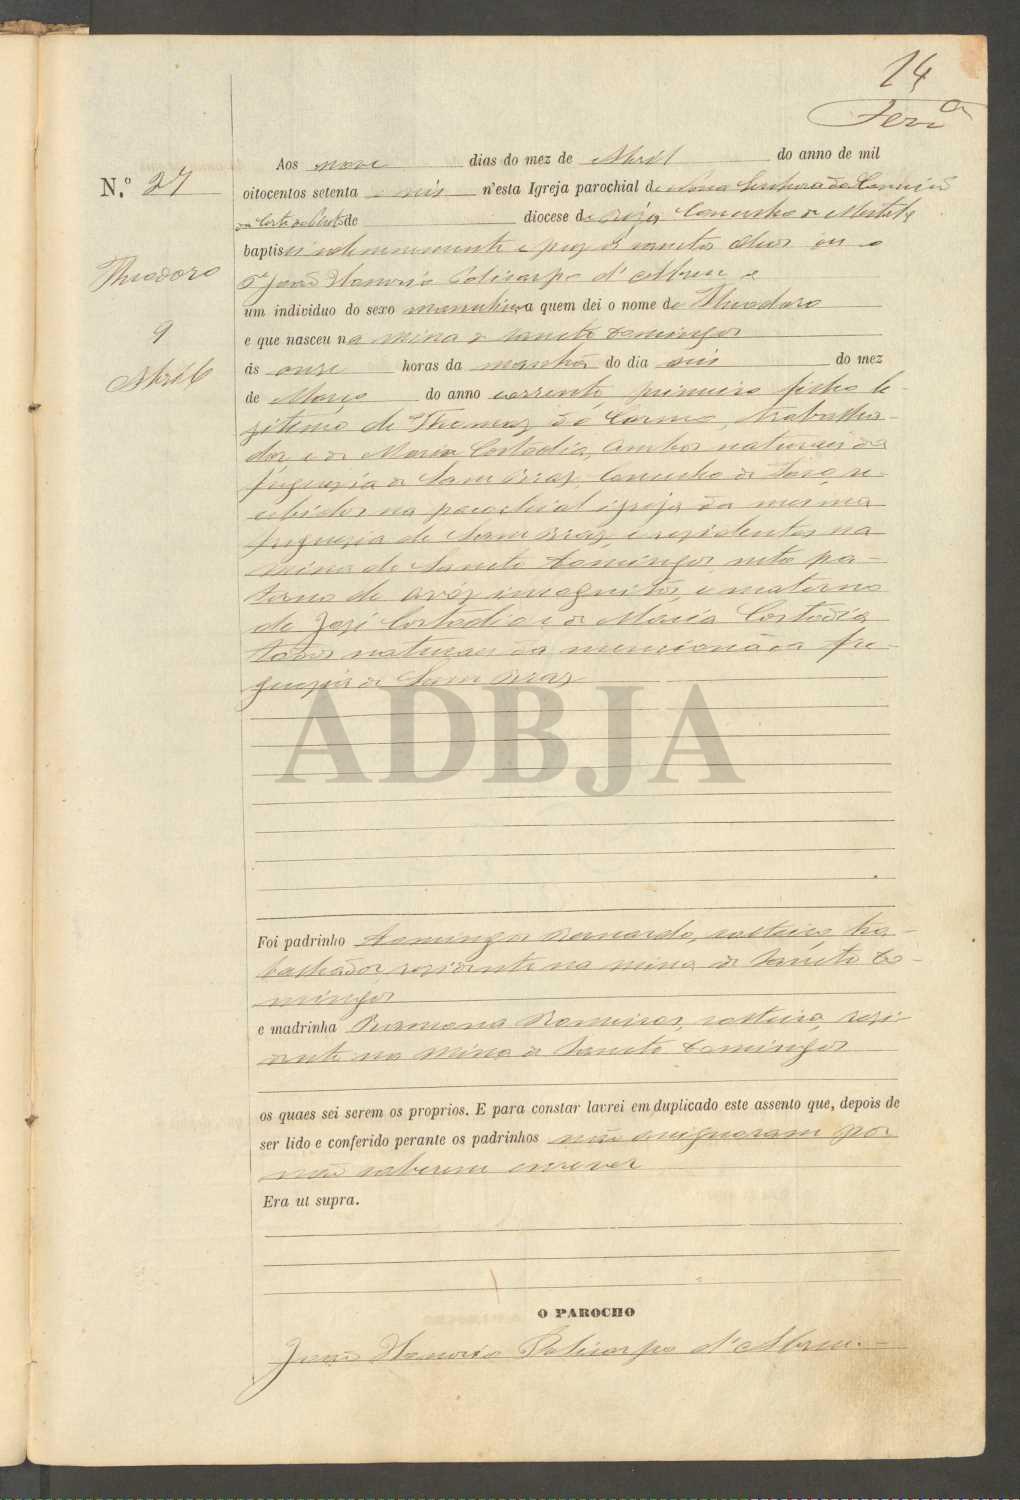 14
Ferr.ª
Aos nove dias do mez de Abril do anno de mil
N.º 27
oitocentos setenta e seis n'esta Igreja parochial de Nossa Senhora da Conceição
da Corte do Pinto de diocese de Beja, Concelho de Mertola
baptisei solemnemente e puz os sanctos oleos eu o
P.e João Honorio Policarpo d'Abreu e
Theodoro
um individuo do sexo masculino a quem dei o nome de Theodoro
9
e que nasceu na mina de Sancto Domingos
Abril
ás onze horas da manhã do dia seis do mez
de Março do anno corrente, primeiro filho le-
gitimo de Thomaz do Carmo, trabalha-
dor e de Maria Custodia, ambos naturaes da
freguezia de Sam Braz, Concelho de Faro, re-
cebidos na parochial igreja da mesma
freguezia de Sam Braz, e residentes na
mina de Sancto Domingos, neto pa-
terno de avós incognitos, e materno
de José Custodio e de Maria Custodia
todos naturaes da mencionada fre-
guezia de Sam Braz
ADBJA
Foi padrinho Domingos Bernardo, solteiro, tra-
balhador, residente na mina de Sancto Do-
mingos
e madrinha Romeiras, solteira, resi-
dente na Mina de Sancto Domingos
os quaes sei serem os proprios. E para constar lavrei em duplicado este assento que, depois de
ser lido e conferido perante os padrinhos não assignaram por
não saberem escrever
Era ut supra.
O PAROCHO
João Honorio Policarpo d'Abreu.